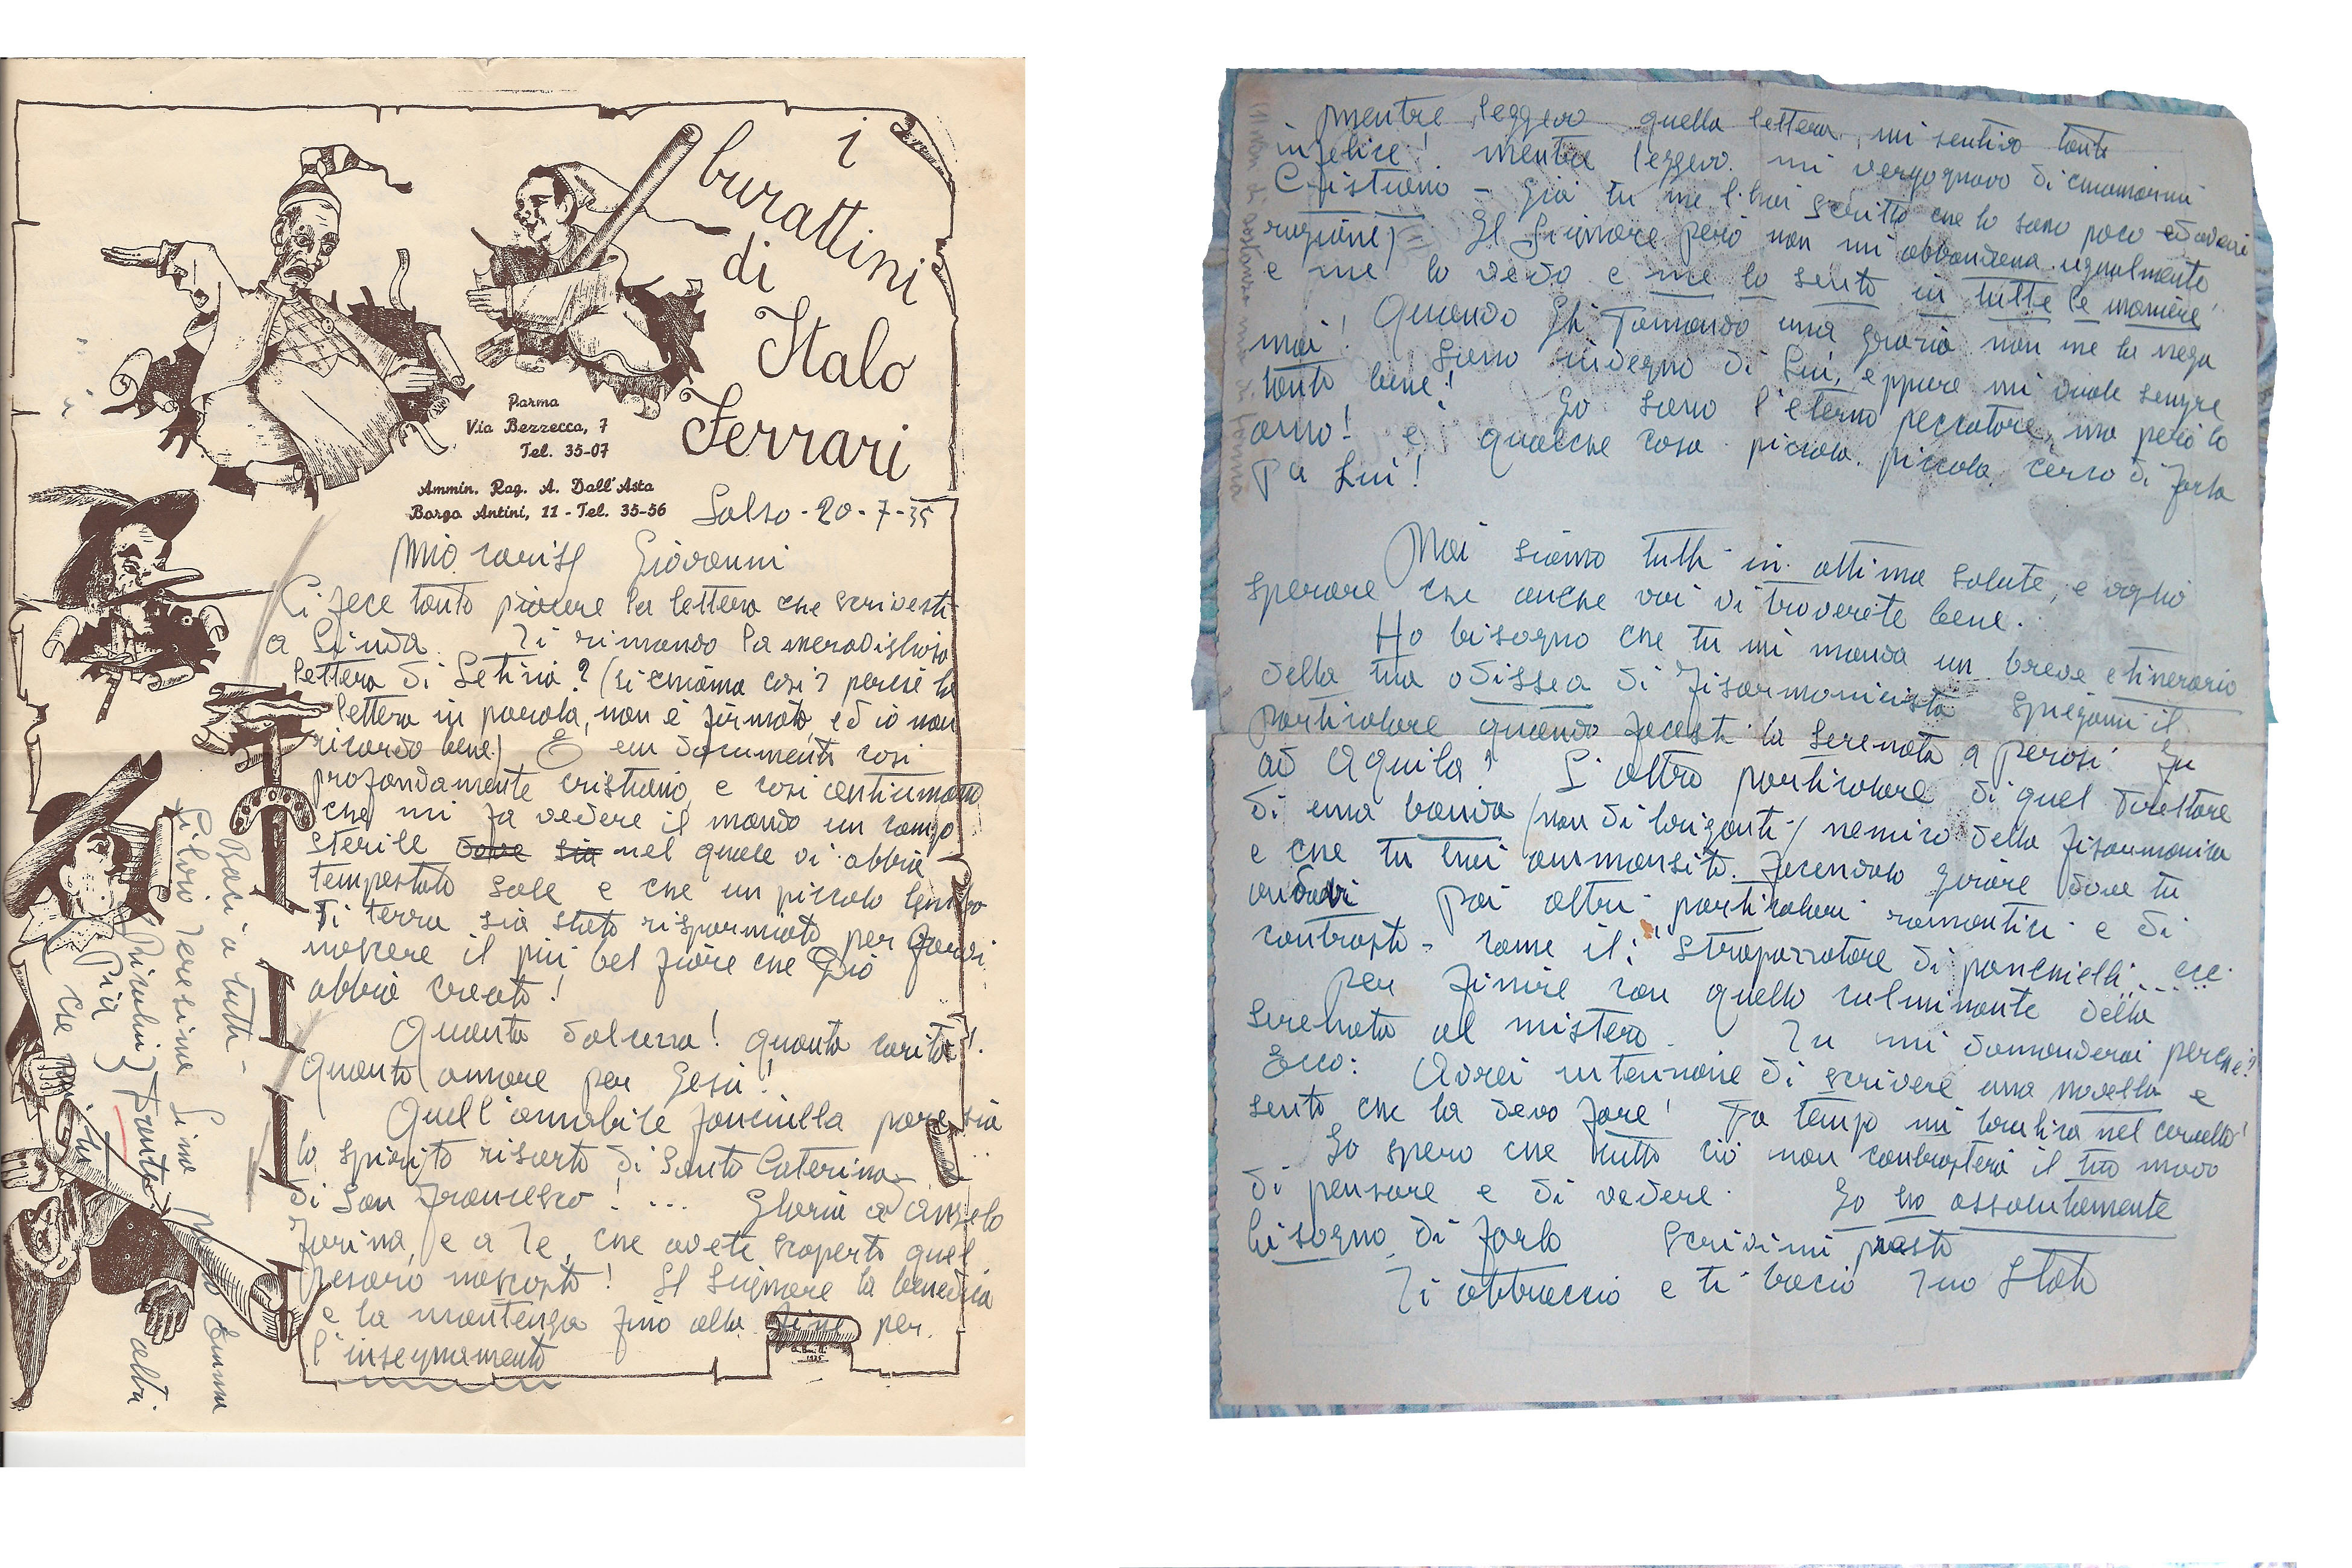 i
burattini
di
Italo
Ferrari
Parma
Via Bezzecca, 7
Tel. 35-07
Ammin. Rag. A. Dall'Asta
Borgo Antini, 11 - Tel. 35-56
Salso - 20 - 7 - 35
Mio cariss Giovanni
Ci fece tanto piacere la lettera che scrivesti
a Linda. Ti rimando la meravigliosa
lettera di Letizia? (si chiama così? perché la
lettera in parola, non è firmata, ed io non
ricordo bene) È un documento così
profondamente cristiano, e così
che mi fa vedere il mondo un campo
sterile dove sia nel quale vi abbia
tempestato sale e che un piccolo lembo
di terra sia stato risparmiato per farvi
nascere il più bel fiore che Dio
abbia creato!
Quanta dolcezza! quanta carità!
Quanto amore per Gesù!
Quell'amabile fanciulla pare sia
lo spirito risorto di Santa Caterina
di San Francesco! ... Gloria ad Angelo
Farina, e a Te, che avete scoperto quel
tesoro nascosto! Il Signore la benedica
e la mantenga fino alla fine per
l'insegnamento
Baci a tutti -
Silvio Teresina Gino Emma
Piccolini
Pia
che tu
altri
mentre leggevo quella lettera, mi sentivo tanto
infelice! mentre leggevo mi vergognavo di chiamarmi
Cristiano - Già tu me l'hai scritto che lo sono poco ed avevi
ragione) Il Signore però non mi abbandona ugualmente
e me lo vedo e me lo sento in tutte le maniere
mai! Quando Gli domando una grazia non me la nega
tanto bene! Sono indegno di Lui, eppure mi vuole sempre
amo! e Io sono l'eterno peccatore, ma però lo
qualche cosa piccola, piccola, cerco di farla
Pa Lui!
Noi siamo tutti in ottima salute, e voglio
sperare che anche voi vi troverete bene.
Ho bisogno che tu mi manda un breve etinerario
della tua odissea di fisarmonicista Spiegami il
particolare quando facesti la serenata a Perosi
ad Aquila! L'altro particolare di quel direttore
di una banda (non di briganti) nemico della fisarmonica
e che tu hai ammansito. facendolo girare dove tu
andavi Poi altri particolari romantici e di
contrasto - come il: "Strapazzatore di ponchielli.... ecc.
Per finire con quello culminante della
serenata al mistero. Tu mi domanderai perché?
Ecco: Avrei intenzione di scrivere una novella e
sento che la devo fare! Da tempo mi nel cervello!
Io spero che tutto ciò non contrasterà il tuo modo
di pensare e di vedere. Io ho assolutamente
bisogno di farlo Scrivimi presto
Ti abbraccio e ti bacio Tuo